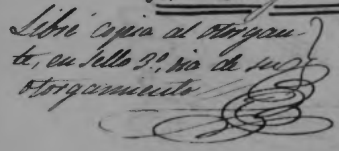 Libré copia al otorgan-
te, en sello 3º, dia de su
otorgamiento